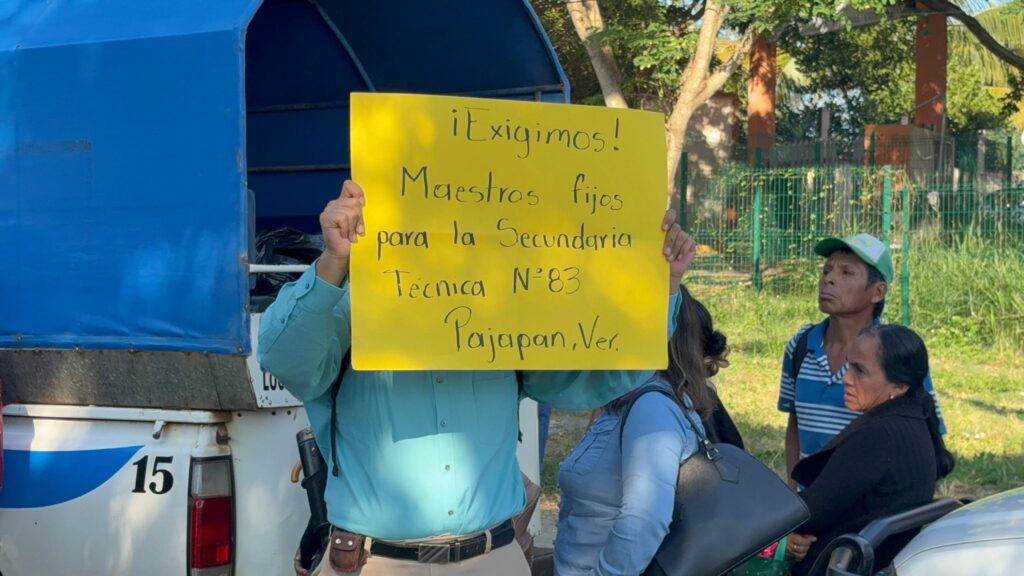 ¡Exigimos!
Maestros fijos
para la Secundaria
Técnica N° 83
Pajapan, Ver.
15